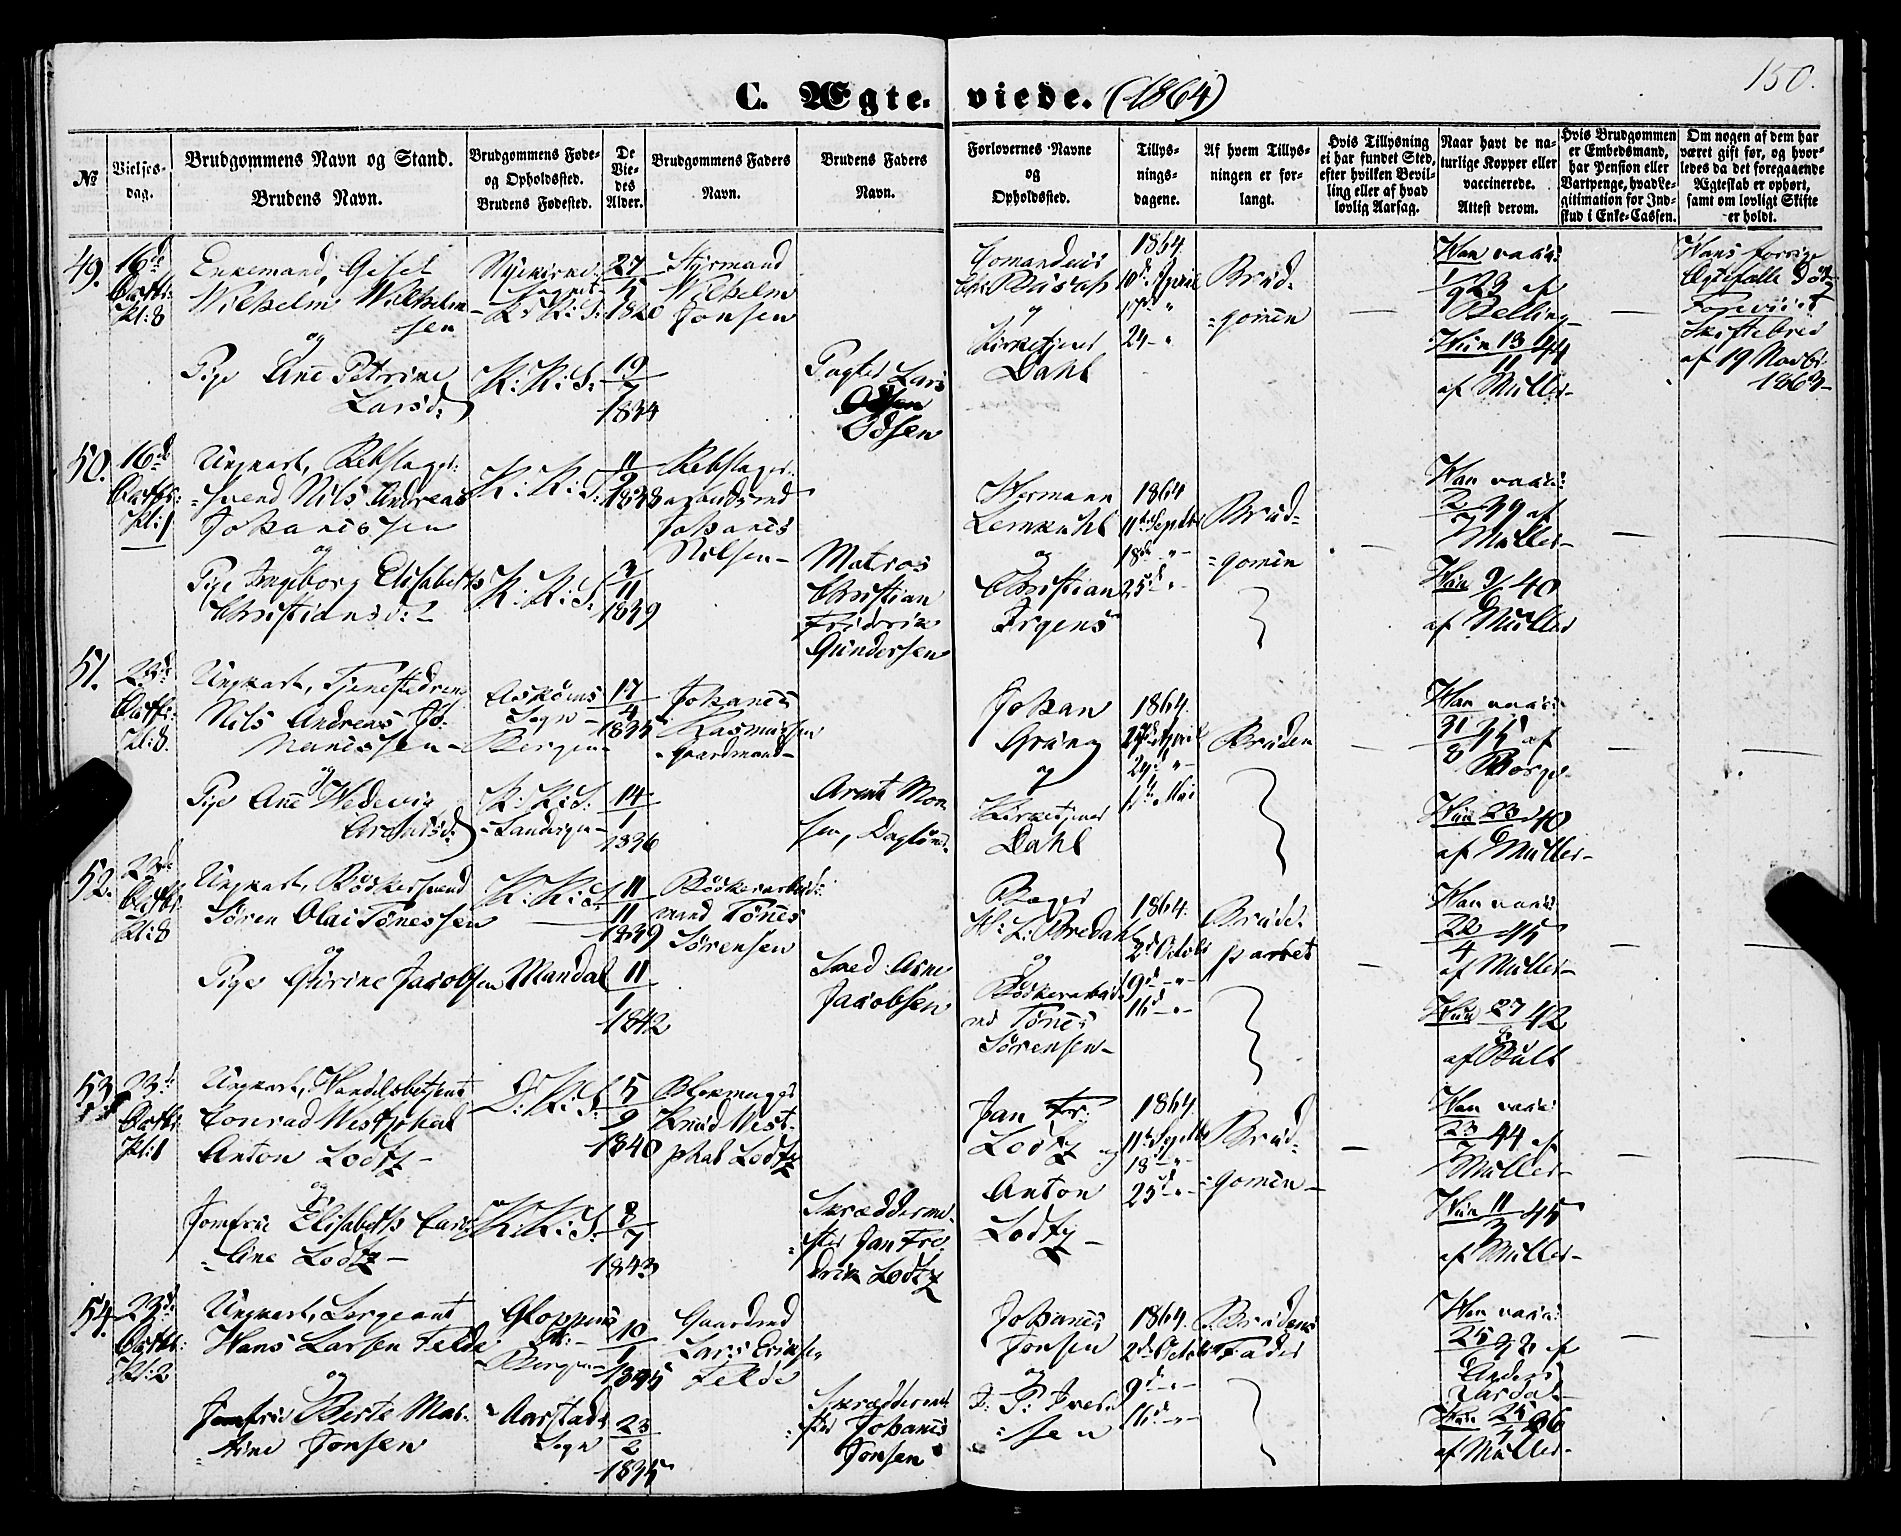 150.
C. Ægte-viede. (1864)
№
Vielses-
dag.
Brudgommens Navn og Stand.
Brudens Navn.
Brudgommens Føde-
og Opholdssted.
Brudens Fødested.
De
Vie-
des
Alder.
Brudgommens Faders
Navn.
Brudens Faders
Navn.
Forlovernes Navne
og
Opholdssted.
Tillys-
nings-
dagene.
Af hvem Tillys-
ningen er for-
langt.
Hvis Tillysning
ei har fundet Sted,
efter hvilken Bevil-
ling eller af hvad
lovlig Aarsag.
Naar havt de na-
turlige Kopper eller
vaccinerede.
Attest derom.
Hvis Brudgommen
er Embedsmand,
har Pension eller
Vartpenge, hvad Le-
gitimation for Ind-
skud i Enke-Cassen.
Om nogen af dem har
været gift før, og hvor-
ledes da det foregaaende
Ægteskab er ophørt,
samt om lovligt Skifte
er holdt.
49.
16d
Kl: 8
Enkemand,
Wilhelm Wilhelm-
sen
og
Pige Ane Petrine
Larsd:
K: K: S:
K: K: S:
27
1820
19
7
1834
Styrmand
Wilhelm
Jonsen
Lars
Odsen
og
Kirketjener
Dahl
1864
10d April
17d "
24 - "
Brud-
=gomen
Han vacc:
af
Hun 13/11 44
af Müller
Hans forrige
Skiftebrev
af 19 Novbr
1863
50.
16d
Kl: 1
Ungkarl, Rebslager-
svend Nils Andreas
Johanessen
og
Pige Ingeborg Elisabeth
Christiansd:
K: K: S:
K: K: S:
11
9
1838
3
11
1839
Rebslager-
Johanes
Nilsen
Matros
Christian
Fridrik
Gundersen
Hermann
Lemkuhl
og
Christian
Irgens
1864
11te Septbr
18de "
25d "
Brud-
=gomen
Han vacc:
2/7 39 af
Müller
Hun 9/6 40
af Müller
51.
23d
Kl: 8
Ungkarl, Tjenestedreng
Nils Andreas Jo-
hanessen
og
Pige Ane Hedevig
Arentsd:
Askøens
Sogn
Bergen
K: K: S:
17
4
1835
14
1
1836
Johanes
Rasmussen
Gaardmand
Arent Mon-
sen,
Johan
Gruug
og
Kirketjener
Dahl
1864
April
Mai
Bruden
Han vacc:
31/8 35 af
Hun 23/6 40
af Müller
52.
23d
Kl: 8
Ungkarl, Bødkersvend
Søren Olai Tønessen
og
Pige Gurine Jacobsen
K: K: S:
Mandal
11
11
1839
11
1
1842
Bødkerarbeids-
mand Tønes
Sørensen
Smed Arne
Jacobsen
Bager
Bredahl
og
Tønes
Sørensen
1864
2d Octobr
9d - " -
16d - " -
Brude-
parret
Han vacc:
22/4 45
af Müller
Hun 27/8 42
af Bull
53.
23d
Kl: 1
Ungkarl, Handelsbetjent
Conrad Westphal
Anton Lodtz
og
Jomfru Elisabeth Caro-
line Lodtz
D: K: S:
K: K: S:
5
9
1840
8
7
1843
Blokmager
Knud West-
phal Lodtz
Skrædderme-
ster Jan Fre-
drik Lodtz
Jan Fr:
Lodtz og
Anton
Lodtz
1864
11te Septbr
18 - " -
25d - " -
Brud-
=gomen
Han vacc:
23/7 44 af
Müller
Hun 11/3 45
af Müller
54.
23d
Kl: 2
Ungkarl, Sergeant
Hans Larsen Felde
og
Jomfru Berte Mar-
tine Jonsen
Gloppens
Bergen
Aarstads
Sogn
10
1
1835
23
2
1835
Gaardmd
Lars Eriksen
Felde
Skrædderme-
ster Johanes
Jonsen
Johanes
Jonsen
og
J: P: Iver-
sen
1864
2d Octobr
9d - " -
16d - " -
Brudens
Fader
Han vacc:
af
Anders
Hun 25/7 36
af Müller